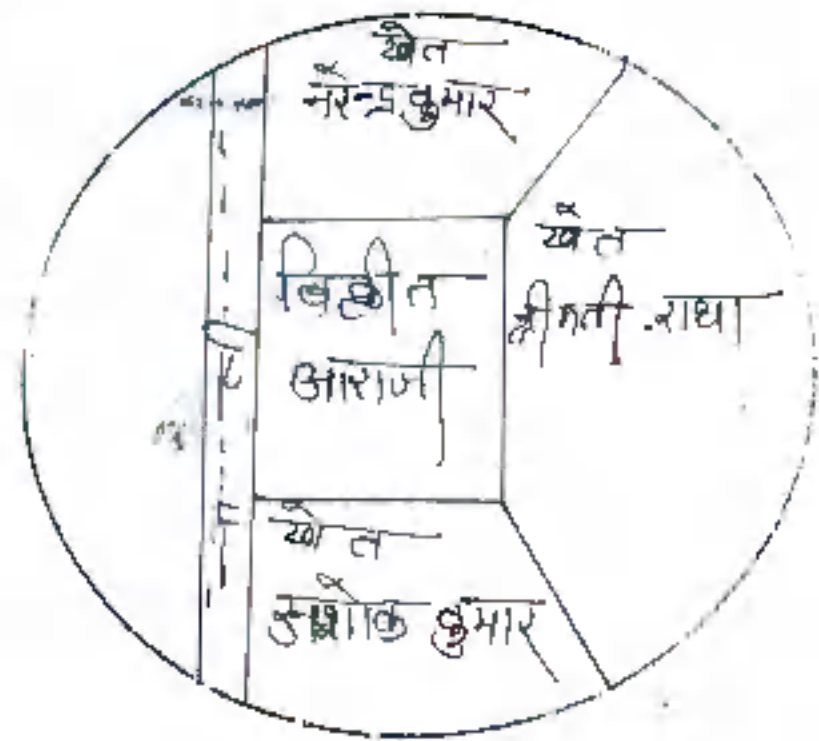 खेत
नरेन्द्र कुमार
खेत
श्रीमती राधा
विक्रीत
आराजी
खेत
कुमार